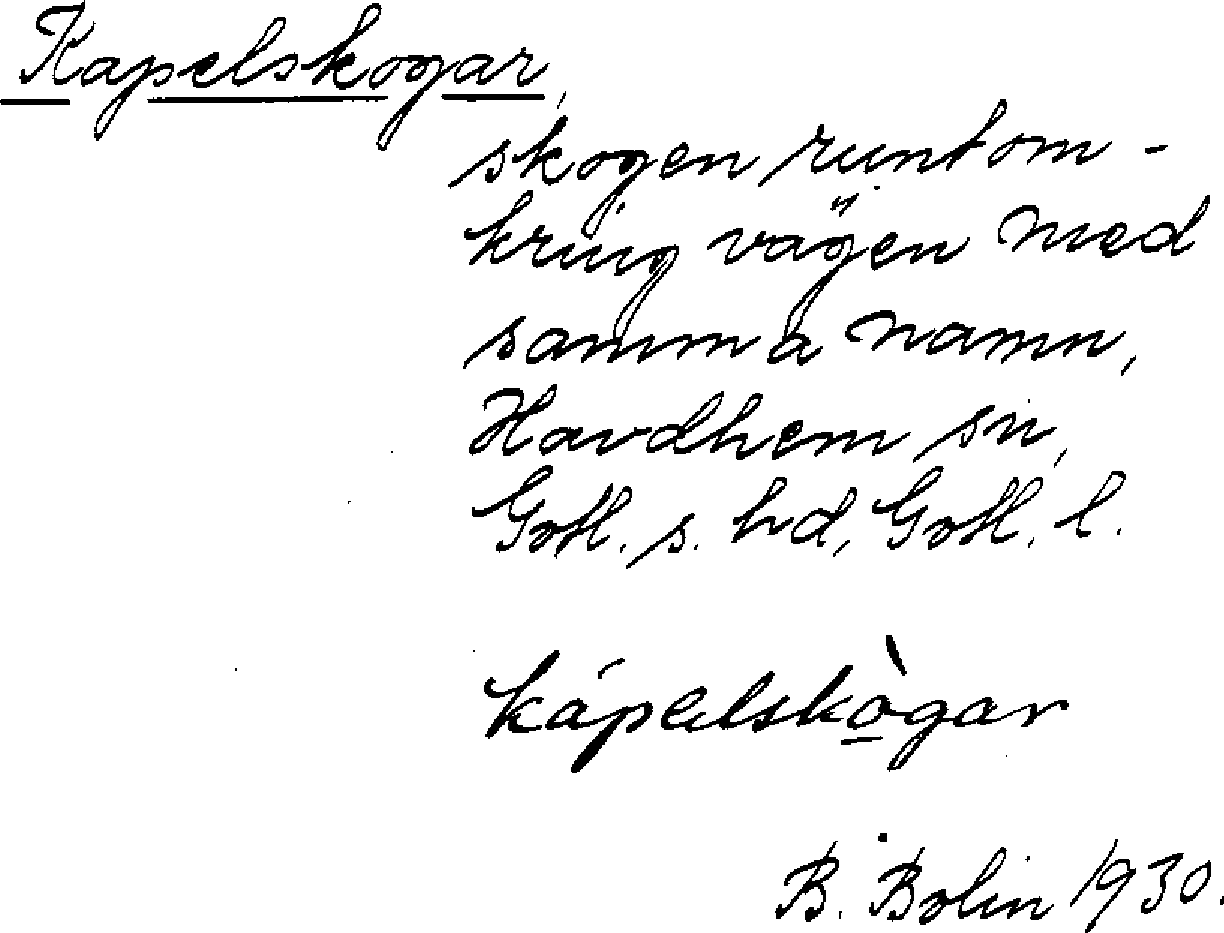 Kapelskogar,
skogen runtom-
kring vägen med
samma namn,
Havdhem sn,
Gotl. s. hd, Gotl. l.
kápelskò̱gar
B. Bolin 1930.